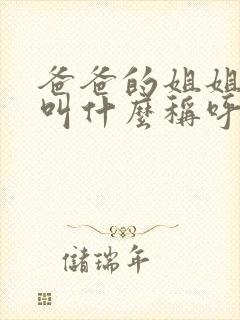 爸爸的姐姐
叫什麼稱呼
儲瑞年